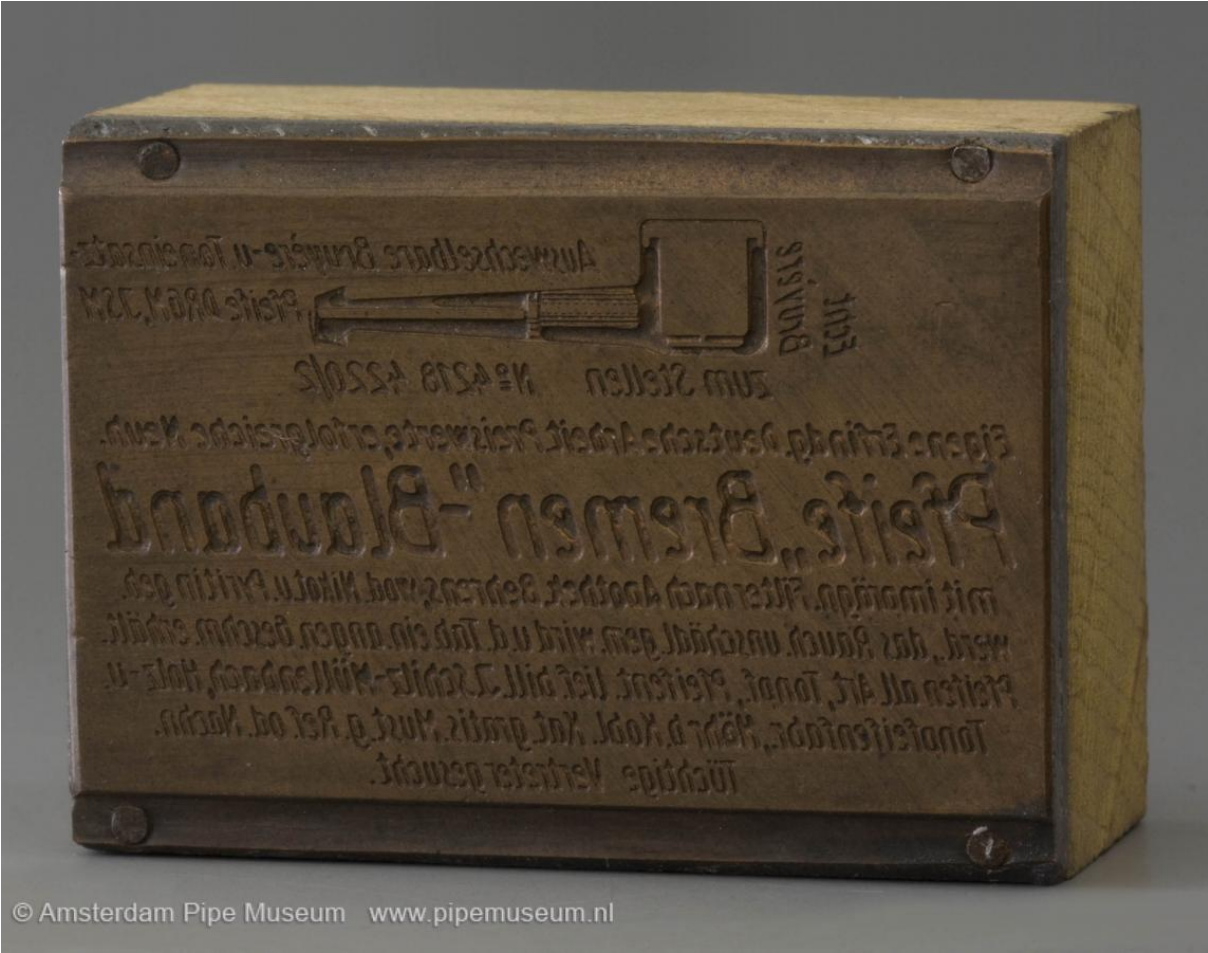 Echt
Bruyère
Auswechselbare Bruyère-u. Toneinsatz-
Pfeife DRGM, JSM
zum Stellen Nº 4218 4220/2
Eigene Erfindg. Deutsche Arbeit. Preiswerte, erfolgreiche Neuh.
Pfeife „Bremen"-Blauband
mit imprägn. Filter nach Apothek. Behrens, wod. Nikot. u. Pyritin geb.
werd., das Rauch. unschädl. gem. wird u. d. Tab. ein. angen. Geschm. erhält.
Pfeifen all. Art, Tonpf., Pfeifent. lief. bill. J. Schilz-Müllenbach, Holz-u.
Tonpfeifenfabr., Höhr b. Kobl. Kat. gratis. Must. g. Ref. od. Nachn.
Tüchtige Vertreter gesucht.
© Amsterdam Pipe Museum www.pipemuseum.nl